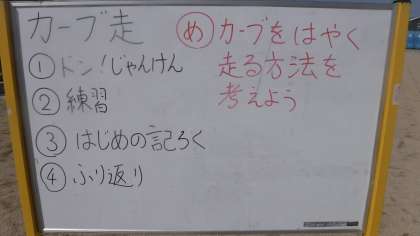 カーブ走
①ドン!じゃんけん
②練習
③はじめの記ろく
④ふり返り
めカーブをはやく
走る方法を
考えよう